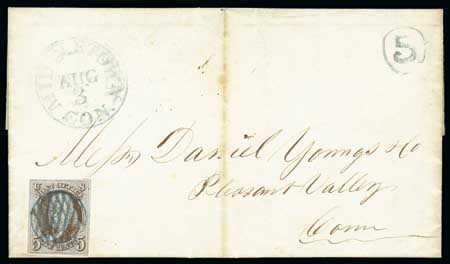 MIDDLETOWN
AUG
3
CON.
5
Messrs Daniel Youngs & Co
Pleasant Valley
Conn
POST OFFICE
5 5